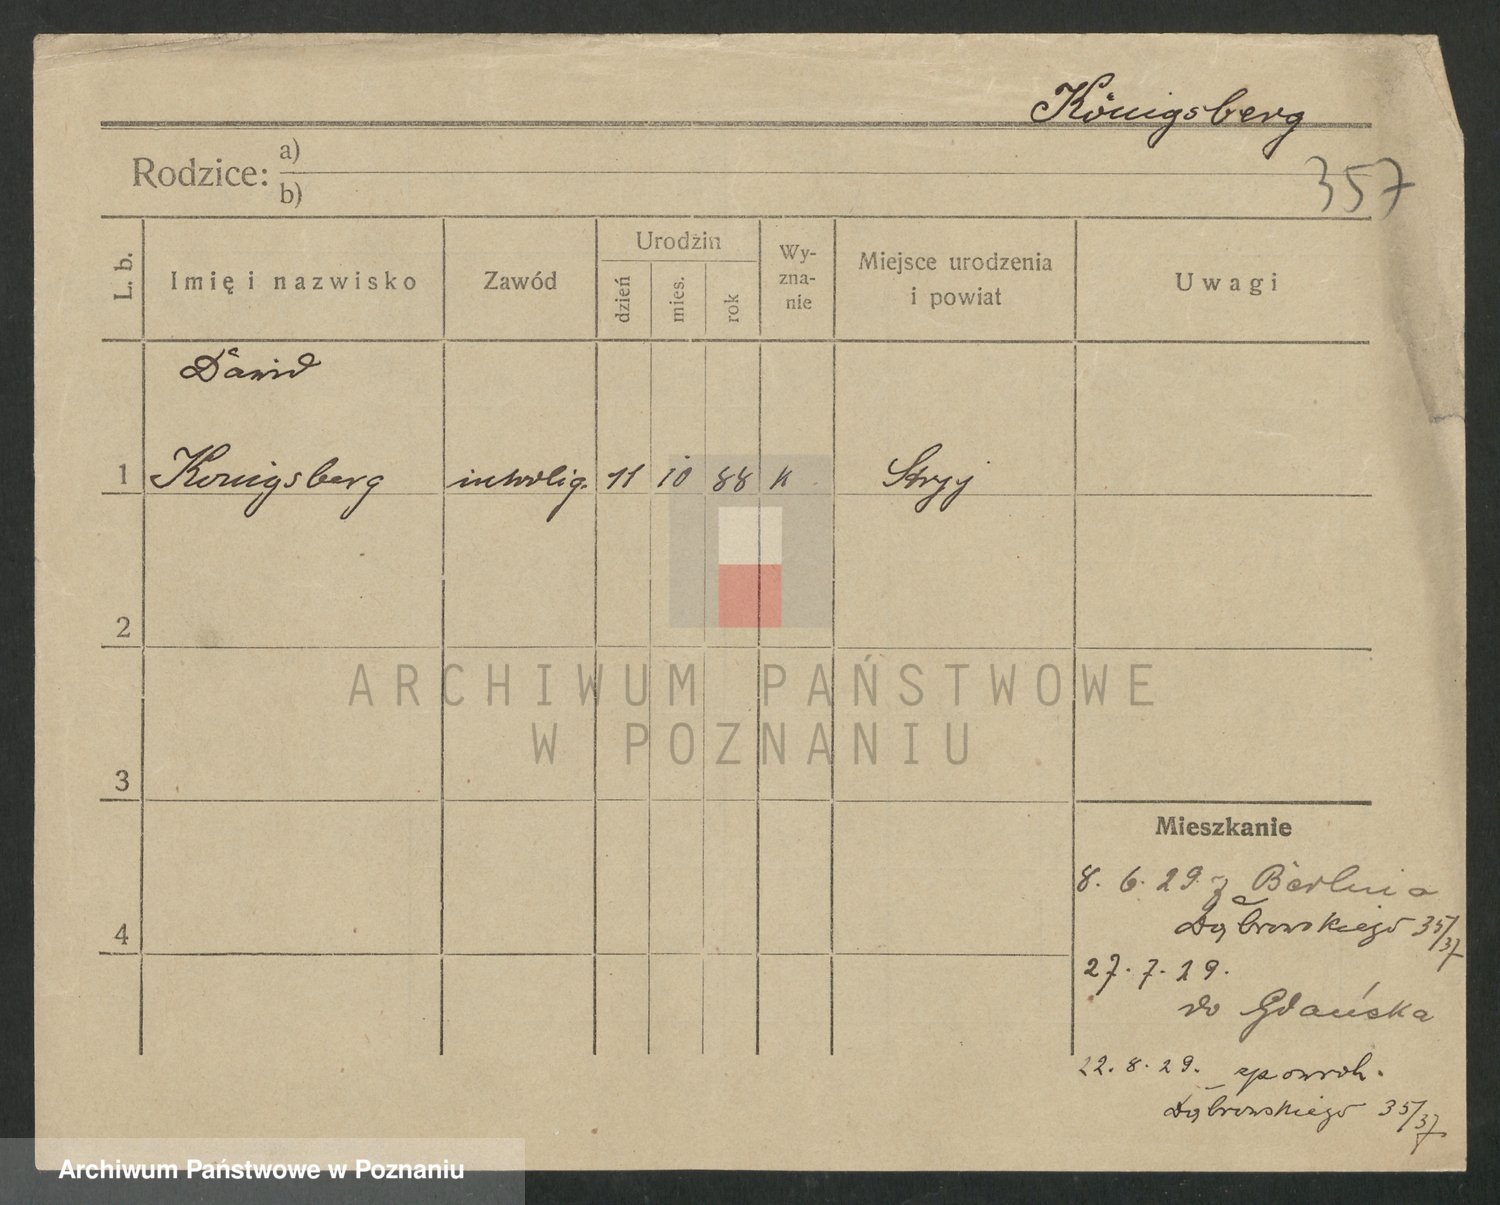 Königsberg
357
Rodzice: a)
b)
L. b.
Imię i nazwisko
Zawód
Urodzin
dzień
mies.
rok
Wy-
zna-
nie
Miejsce urodzenia
i powiat
Uwagi
Dawid
1 Konigsberg introlig. 11 10 88 Stryj
2
3
4
Mieszkanie
8. 6. 29. z Berlina
Dąbrowskiego 35/37
27. 7. 29.
do Gdańska
22. 8. 29.
Dąbrowskiego 35/37
ARCHIWUM PAŃSTWOWE
W POZNANIU
Archiwum Państwowe w Poznaniu